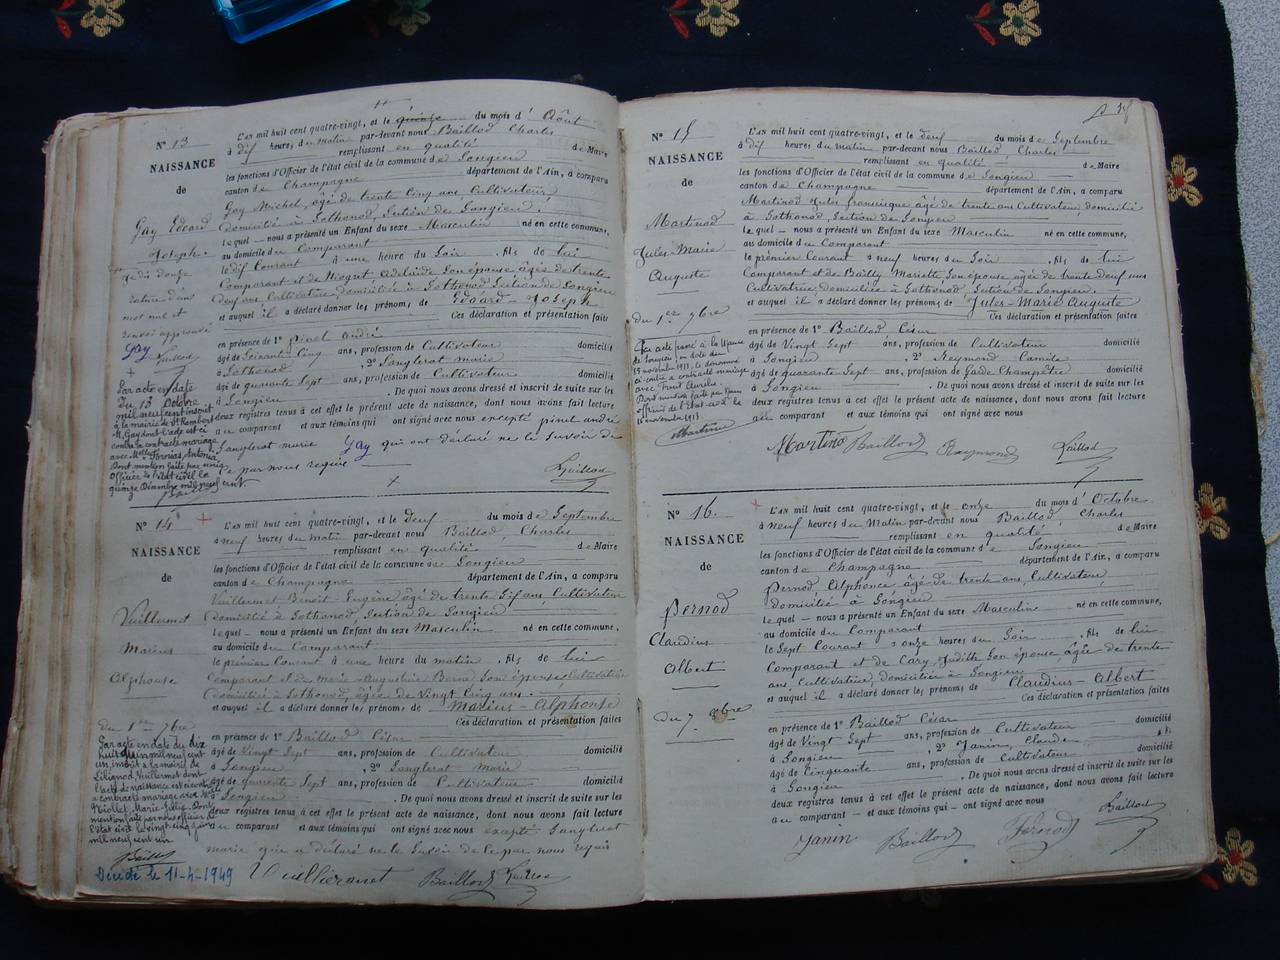 N° 13
NAISSANCE
de
Gay Edoard
Joseph.
L'AN mil huit cent quatre-vingt, et le quinze du mois d' Août
à dix heures du matin par-devant nous Baillod Charles
remplissant en qualité de Maire
les fonctions d'Officier de l'état civil de la commune de Songieu
canton de Champagne département de l'Ain, a comparu
Gay Michel, agé de trente cinq ans, Cultivateur
Domicilié à Sothonod, Section de Songieu.
lequel — nous a présenté un Enfant du sexe Masculin né en cette commune,
au domicile du Comparant
le dix Courant à une heure du Soir, fils de lui
Comparant et de Adelaïde Son épouse âgée de trente
Deux ans Cultivatrice, domiciliée à Sothonod Section de Songieu
et auquel il a déclaré donner les prénoms de Edoard - Joseph
Ces déclaration et présentation faites
en présence de 1° pinel andré
âgé de Soixante Cinq ans, profession de Cultivateur domicilié
à Sothonod, 2° Sanglerat marie
âgé de quarante Sept ans, profession de Cultivateur domicilié
à Songieu. De quoi nous avons dressé et inscrit de suite sur les
deux registres tenus à cet effet le présent acte de naissance, dont nous avons fait lecture
au comparant et aux témoins qui ont signé avec nous excepté pinel andré
Sanglerat marie Gay qui ont déclaré ne le Savoir de
Ce par nous requis
Baillod
approuvé
Gay Baillod
Par acte en date
Du 13 Octobre
mil neuf cent inscrit
à la mairie de St Rambert
M. Gay dont l'acte est ci
contre a contracté mariage
avec Melle Antonia
Dont mention faite par nous
Officier de l'état civil le
quinze Décembre mil neuf cent
Baillod
N° 14
NAISSANCE
de
Vuillermet
Marius
Alphonse
du 1er 7bre
L'AN mil huit cent quatre-vingt, et le Deux du mois de Septembre
à neuf heures du matin par-devant nous Baillod, Charles
remplissant en qualité de Maire
les fonctions d'Officier de l'état civil de la commune de Songieu
canton de Champagne département de l'Ain, a comparu
Vuillermet Benoit-Eugène âgé de trente Six ans, Cultivateur
Domicilié à Sothonod, Section de Songieu
lequel — nous a présenté un Enfant du sexe Masculin né en cette commune,
au domicile du Comparant
le premier Courant à une heure du matin, fils de lui
Comparant et de Marie-Augustine Son épouse Cultivatrice
Domiciliée à Sothonod, âgée de Vingt Cinq ans.
et auquel il a déclaré donner les prénoms de Marius - Alphonse
Ces déclaration et présentation faites
en présence de 1° Baillod César
âgé de Vingt Sept ans, profession de Cultivateur domicilié
à Songieu, 2° Sanglerat Marie
âgé de quarente Sept ans, profession de Cultivateur domicilié
à Songieu. De quoi nous avons dressé et inscrit de suite sur les
deux registres tenus à cet effet le présent acte de naissance, dont nous avons fait lecture
au comparant et aux témoins qui ont signé avec nous excepté Sanglerat
marie qui a déclaré ne le Savoir de ce par nous requis
Vuillermet Baillod Baillod
Par acte en date du dix
huit juin mil neuf cent
un, inscrit à la mairie de
Lilignod, Vuillermet dont
l'acte de naissance est ci contre
a contracté mariage avec Melle
Marie Julie. Dont
mention faite par nous officier de
l'état civil le vingt cinq juin
mil neuf cent un
Baillod
Décédé le 11-4-1949
N° 15
NAISSANCE
de
Martinod
Jules-Marie
Auguste
du 1er 7bre
L'AN mil huit cent quatre-vingt, et le deux du mois de Septembre
à dix heures du Matin par-devant nous Baillod, Charles
remplissant en qualité de Maire
les fonctions d'Officier de l'état civil de la commune de Songieu
canton de Champagne département de l'Ain, a comparu
Martinod Jules francisque âgé de trente ans Cultivateur, domicilié
à Sothonod, Section de Songieu
lequel — nous a présenté un Enfant du sexe Masculin né en cette commune,
au domicile du Comparant
le premier Courant à neuf heures du Soir, fils de lui
Comparant et de Bailly Mariette Son épouse âgée de trente Deux ans
Cultivatrice Domiciliée à Sothonod, Section de Songieu.
et auquel il a déclaré donner les prénoms de Jules-Marie Auguste
Ces déclaration et présentation faites
en présence de 1° Baillod, César
âgé de Vingt Sept ans, profession de Cultivateur domicilié
à Songieu, 2° Reymond Camile
âgé de quarante Sept ans, profession de Garde Champêtre domicilié
à Songieu. De quoi nous avons dressé et inscrit de suite sur les
deux registres tenus à cet effet le présent acte de naissance, dont nous avons fait lecture
au comparant et aux témoins qui ont signé avec nous
Martinod Baillod Raymond Baillod
Par acte passé à la Mairie
de Songieu en date du
15 novembre 1913, le dénommé
ci-contre a contracté mariage
avec Aurélie
Dont mention faite par Nous
officier de l'Etat-civil le
16 novembre 1913.
N° 16.
NAISSANCE
de
Pernod
Claudius
Albert
Du 7. 8bre
L'AN mil huit cent quatre-vingt, et le onze du mois d' Octobre
à neuf heures du Matin par-devant nous Baillod, Charles
remplissant en qualité de Maire
les fonctions d'Officier de l'état civil de la commune de Songieu
canton de Champagne département de l'Ain, a comparu
Pernod Alphonce âgé de trente ans, Cultivateur
domicilié à Songieu
lequel — nous a présenté un Enfant du sexe Masculin né en cette commune,
au domicile du Comparant
le Sept Courant à onze heures du Soir, fils de lui
Comparant et de Cary, Judith Son épouse, âgée de trente
ans, Cultivatrice, domiciliée à Songieu
et auquel il a déclaré donner les prénoms de Claudius - Albert
Ces déclaration et présentation faites
en présence de 1° Baillod César
âgé de Vingt Sept ans, profession de Cultivateur domicilié
à Songieu, 2° Janin, Claude
âgé de Cinquante ans, profession de Cultivateur domicilié
à Songieu. De quoi nous avons dressé et inscrit de suite sur les
deux registres tenus à cet effet le présent acte de naissance, dont nous avons fait lecture
au comparant — et aux témoins qui — ont signé avec nous
Janin Baillod Pernod Baillod